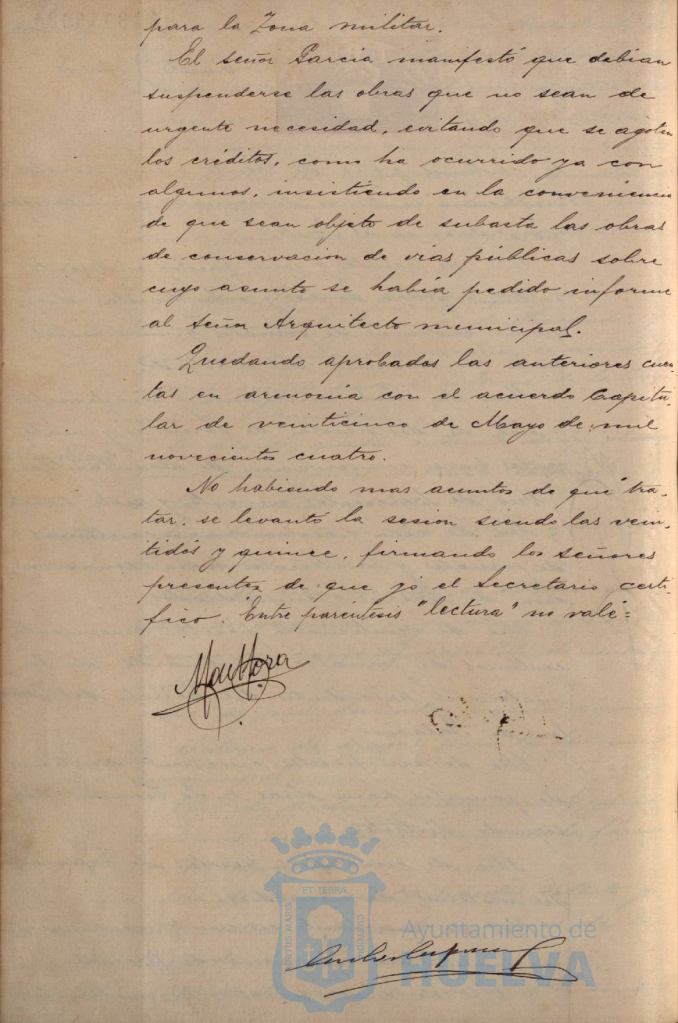 para la Zona militar.
El señor Garcia manifestó que debian
suspenderse las obras que no sean de
urgente necesidad, evitando que se agoten
los créditos, como ha ocurrido ya con
algunos, insistiendo en la conveniencia
de que sean objeto de subasta las obras
de conservacion de vias públicas sobre
cuyo asunto se habia pedido informe
al señor Arquitecto municipal.
Quedando aprobadas las anteriores cuen-
tas en armonía con el acuerdo Capitu-
lar de veinticinco de Mayo de mil
novecientos cuatro.
No habiendo mas asuntos de que tra-
tar, se levantó la sesion siendo las vein-
tidós y quince, firmando los señores
presentes de que yó el Secretario certi-
fico. Entre paréntesis "lectura" no vale=
Ayuntamiento de
HUELVA